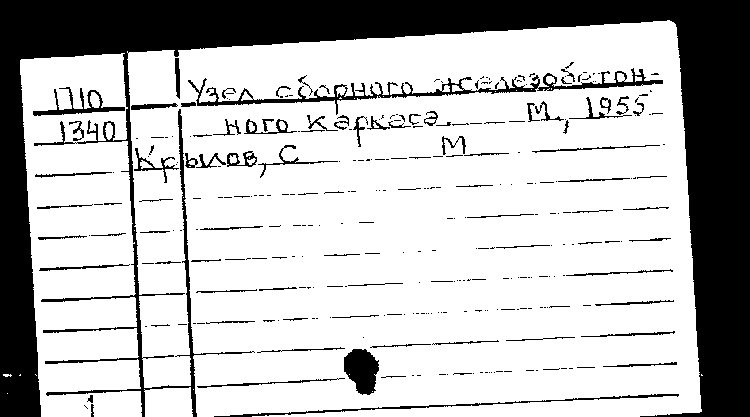 П10 Узел сборного железобетон-
1340 ного каркаса. М., 1955
Крылов, С М
1